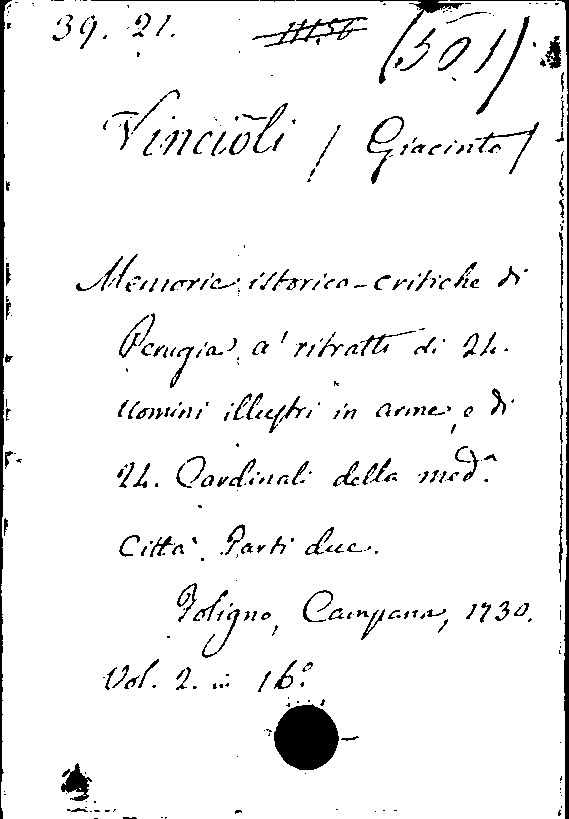 39. 21. (50.1)
Vincioli / Giacinto /
Memorie istorico-critiche di
Perugia, a' ritratti di 24.
uomini illustri in arme, e di
24. Cardinali della med.ª
Città. Parti due.
Foligno, Campana, 1730.
Vol. 2. in 16.º